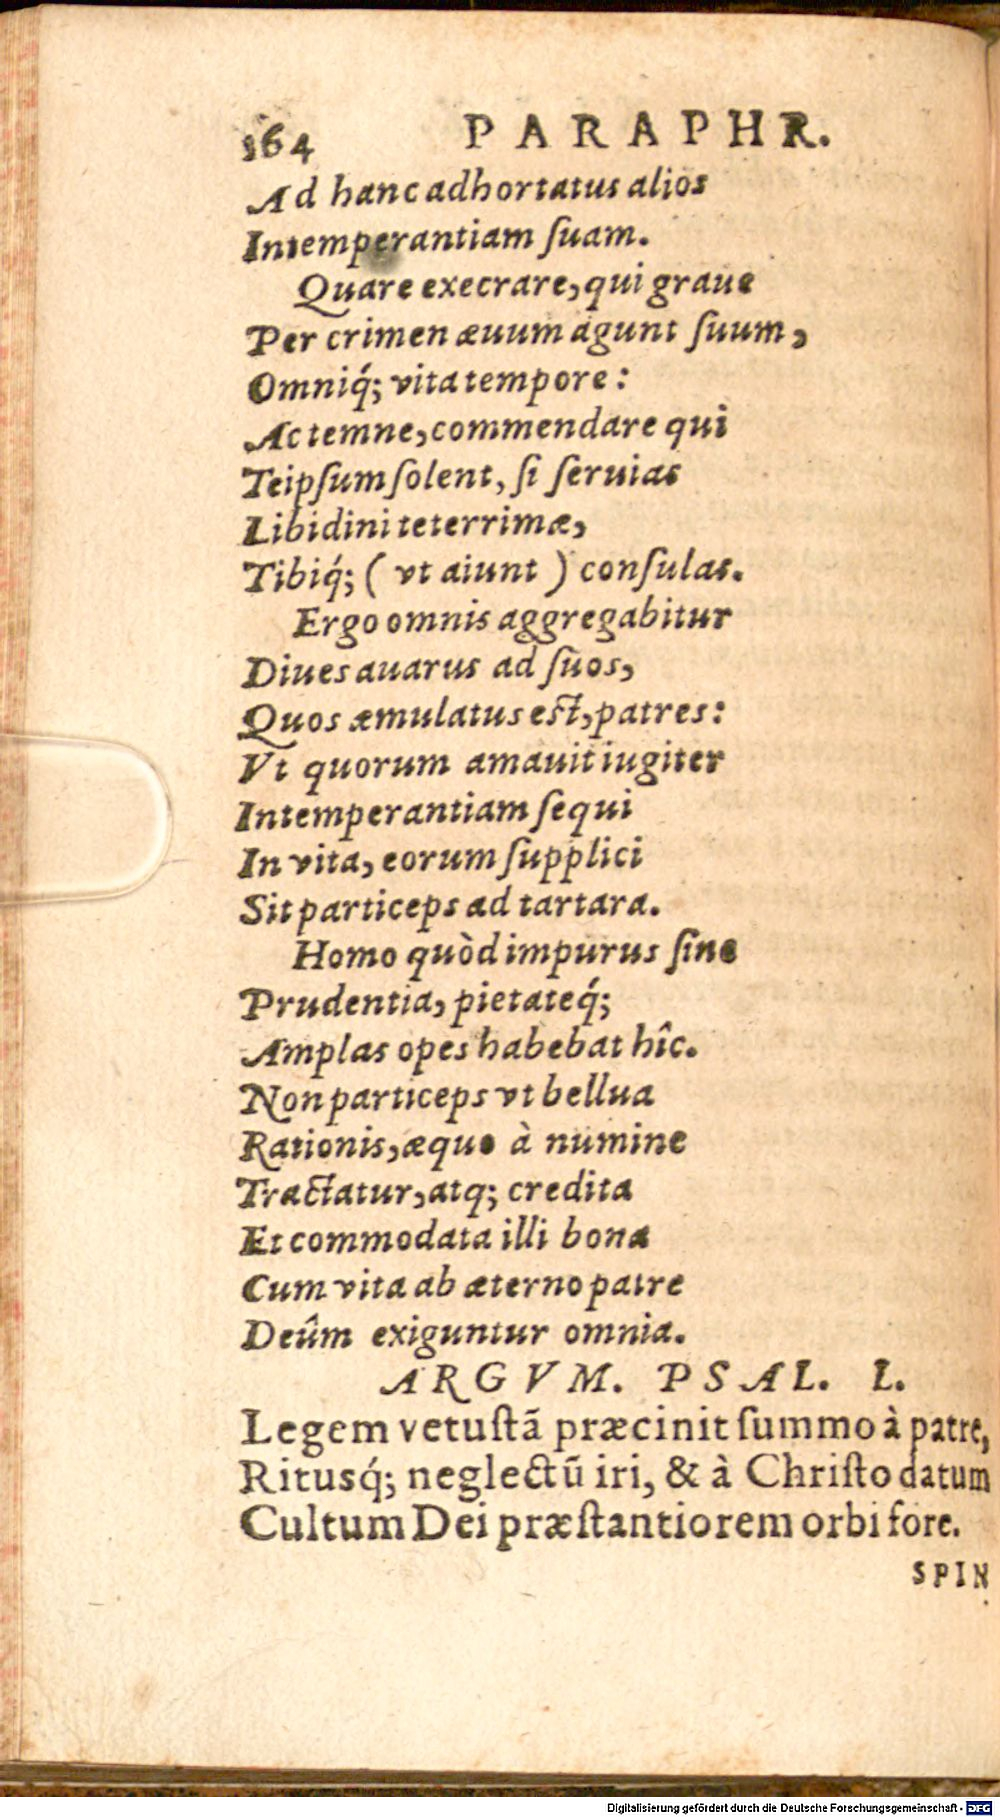 164 PARAPHR.
Ad hanc adhortatus alios
Intemperantiam ſuam.
Quare execrare, qui graue
Per crimen æuum agunt ſuum,
Omniq́; vita tempore:
Ac temne, commendare qui
Teipſum ſolent, ſi ſeruias
Libidini teterrimæ,
Tibiq́; ( vt aiunt ) conſulas.
Ergo omnis aggregabitur
Diues auarus ad ſuos,
Quos æmulatus eſt, patres:
Vt quorum amauit iugiter
Intemperantiam ſequi
In vita, eorum ſupplici
Sit particeps ad tartara.
Homo quòd impurus ſine
Prudentia, pietateq́;
Amplas opes habebat hîc.
Non particeps vt bellua
Rationis, æquo à numine
Tractatur, atq; credita
Et commodata illi bona
Cum vita ab æterno patre
Deûm exiguntur omnia.
ARGVM. PSAL. L.
Legem vetuſtã præcinit ſummo à patre,
Ritusq́; neglectũ iri, & à Chriſto datum
Cultum Dei præſtantiorem orbi fore.
SPIN
Digitalisierung gefördert durch die Deutsche Forschungsgemeinschaft - DFG